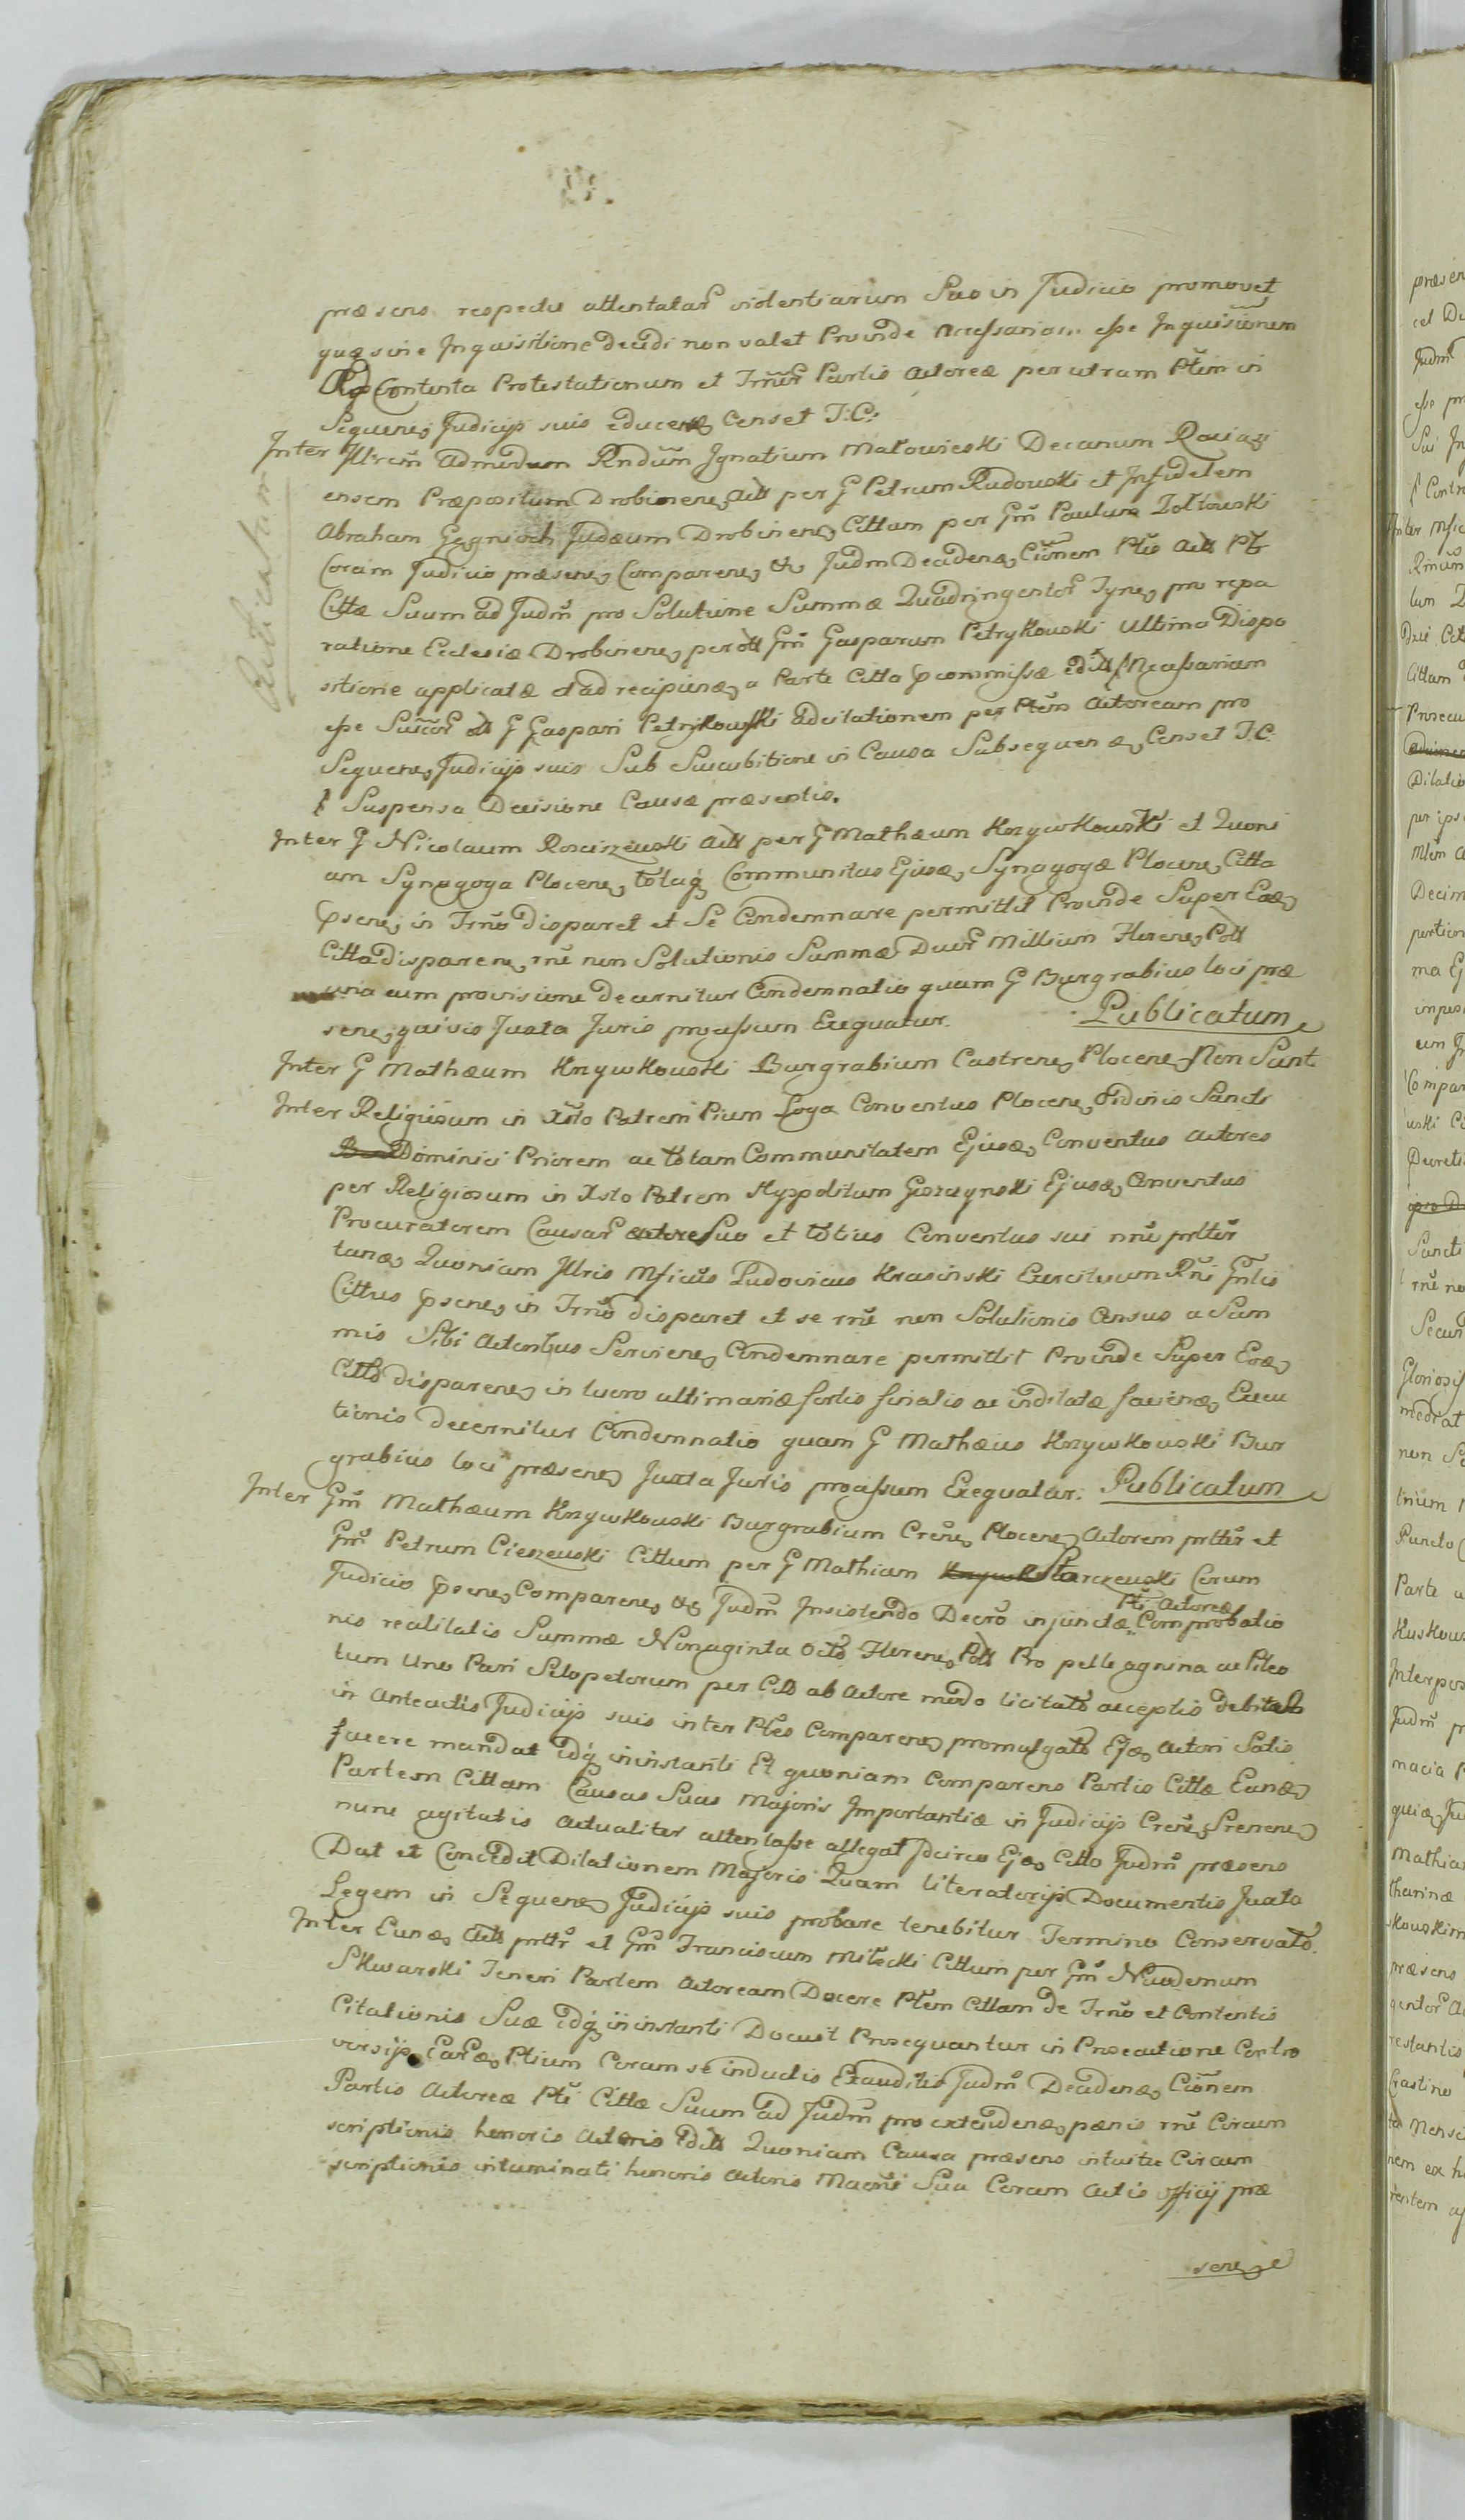 præsens respectu attentatar violentiarum Suo in Judicio promovet
quæ sine Inquisitione decidi non valet Proinde necessariam esse Inquisitionem
Contenta Protestationum et Partis Actoreæ per utram Ptem in
Sequen Judicijs suis educen Censet J: C:
Inter Illrem Admodum Rndum Ignatium Matowieski Decanum Raciąz
ensem Præpositum Drobinen Act per G Petrum Rudowski et Infidelem
Abraham Judæum Drobinen Cittum per Gm Paulum Zołtowski
Coram Judicio præsen Comparen & Judm Deciden Cionem Ptis Act Pti
Cittæ Suum ad Judm pro Solutione Summæ Quadringentor Tynf pro repa
ratione Ecclesiæ Drobinen per oll Gm Gasparum Petrykowski Ultima Dispo
sitione applicatæ et ad recipien a Parte Citta commissæ Necessariam
esse Succor olt G Gaspari Petrykowski adcitationem per Ptem Actoream pro
Sequen Judicijs suis Sub Succubitione in Causa Subsequen Censet J. C.
Suspensa Decisione Causæ præsentis.
Inter G Nicolaum Rosciszewski Act per G Mathæum Krzywkowski et Quoni
am Synagoga Plocen totaq Communitas Ejusd Synagogæ Plocen Citta
psen in Trno disparet et Se Condemnare permittit Proinde Super Ead
Citta disparen rne non Solutionis Summæ Duor Millium Floren Poll
una cum provisione decernitur Condemnatio quam G Burgrabius loci præ
sen quivis Juxta Juris processum Exequatur. Publicatum
Inter G Mathæum Krzywkowski Burgrabium Castren Plocen Non Sunt
Inter Religiosum in Xsto Patrem Pium Łoga Conventus Plocen Ordinis Sancti
Dominici Priorem ac totam Communitatem Ejusd Conventus Actores
per Religiosum in Xsto Patrem Hyppolitum Ejusd Conventus
Procuratorem Causar Suo et totius Conventus sui nne
Quoniam Illris Mficus Ludovicus Krasinski Exercituum Rni Gnlis
Cittus psen in Trno disparet et se rne non Solutionis Census a Sum
mis Sibi Actoribus Servien Condemnare permittit Proinde Super Eod
Citto disparen in lucro ultimariæ sortis finalis ac indilatæ facien Execu
tionis decernitur Condemnatio quam G Mathæus Krzywkowski Bur
grabius loci præsen Juxta Juris processum Exequatur. Publicatum
Inter Gm Mathæum Krzywkowski Burgrabium Cren Plocen Actorem et
Gm Petrum Cieszewski Cittum per G Mathiam Starczewski Coram
Judicio psen Comparen & Judm Insistendo Decro injunctæ Pti Actoreæ Comprobatio
nis realitatis Summæ Nonaginta Octo Floren Poll Pro pelle agnina ac Pileo
tum Uno Pari Sclopetorum per Citt ab Actore modo licitato acceptis
in Anteactis Judicijs suis inter Ptes Comparen promulgato Ejd Actori Satis
facere mandat idq in instanti Et quoniam Comparens Partis Cittæ Eand
Partem Cittam Causas Suas Majoris Importantiæ in Judicijs
nunc agitatis actualiter attentasse allegat Idcirco Ejd Citto Judm præsens
Dat et Concedit Dilationem Majoris Quam literatorijs Documentis Juxta
Legem in Sequen Judicijs suis probare tenebitur Termino Conservato.
Inter Eund Act et Gm Franciscum Miłecki Cittum per Gm Nicodemum
Skwarski Teneri Partem Actoream Docere Ptem Cittam de Trno et Contentis
Citationis Suæ idq in instanti Docuit Prosequantur in Prosecutione Contro
versijs Eard Ptium Coram se inductis Exauditis Judm Deciden Cionem
Partis Actoreæ Pti Cittæ Suum ad Judm pro extenden pænis rne Circum
scriptionis honoris Actoris Quoniam Causa præsens intuitu Circum
scriptionis intaminati honoris Actoris Suo Coram Actis officij præ
sen
Publicatum